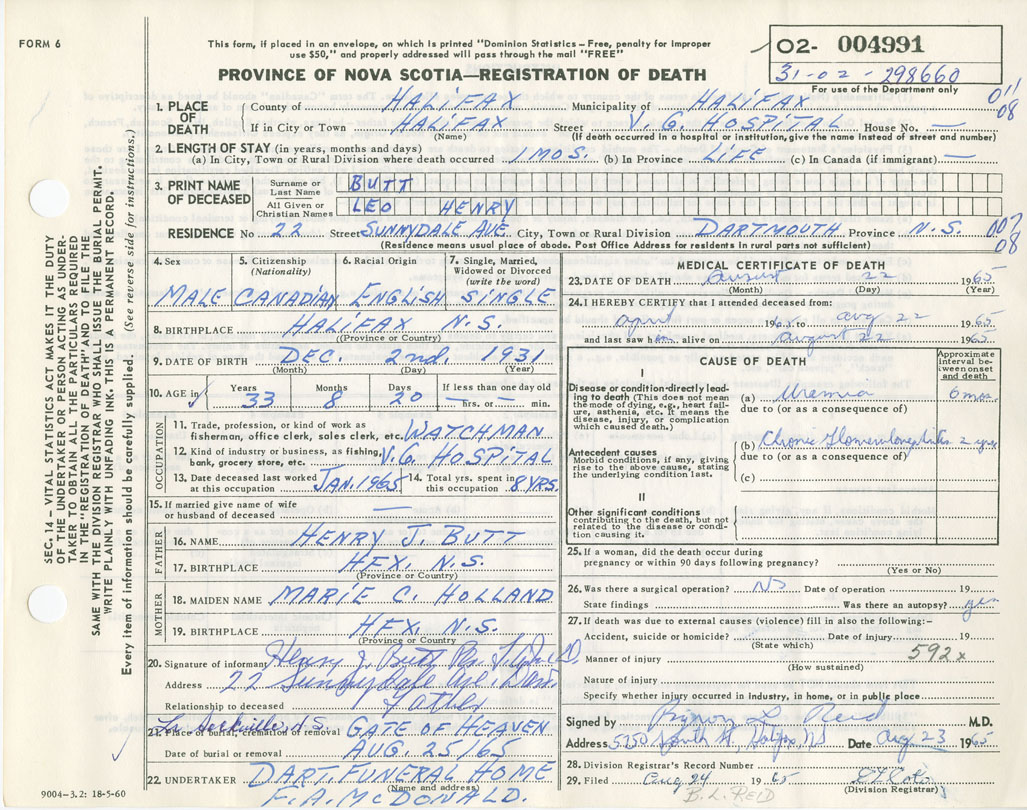 FORM 6
This form, if placed in an envelope, on which is printed "Dominion Statistics – Free, penalty for improper
use $50," and properly addressed will pass through the mail "FREE"
PROVINCE OF NOVA SCOTIA—REGISTRATION OF DEATH
02- 004991
31-02-298660
For use of the Department only
011
08
1. PLACE OF DEATH
County of HALIFAX Municipality of HALIFAX
If in City or Town HALIFAX Street V.G. HOSPITAL House No. —
(Name) (If death occurred in hospital or institution, give the name instead of street and number)
2. LENGTH OF STAY (in years, months and days)
(a) In City, Town or Rural Division where death occurred 1 MOS. (b) In Province LIFE (c) In Canada (if immigrant) —
3. PRINT NAME OF DECEASED
Surname or Last Name BUTT
All Given or Christian Names LEO HENRY
RESIDENCE No 22 Street SUNNYDALE AVE. City, Town or Rural Division DARTMOUTH Province N.S.
(Residence means usual place of abode. Post Office Address for residents in rural parts not sufficient)
007
08
4. Sex 5. Citizenship (Nationality) 6. Racial Origin 7. Single, Married, Widowed or Divorced (write the word)
MALE CANADIAN ENGLISH SINGLE
8. BIRTHPLACE HALIFAX N.S.
(Province or Country)
9. DATE OF BIRTH DEC. 2nd. 1931
(Month) (Day) (Year)
10. AGE in Years Months Days If less than one day old
33 8 20 hrs. or min.
OCCUPATION
11. Trade, profession, or kind of work as
fisherman, office clerk, sales clerk, etc. WATCHMAN
12. Kind of industry or business, as fishing,
bank, grocery store, etc. V.G. HOSPITAL
13. Date deceased last worked at this occupation JAN. 1965 14. Total yrs. spent in this occupation 8 YRS.
15. If married give name of wife
or husband of deceased —
FATHER
16. NAME HENRY J. BUTT
17. BIRTHPLACE HFX. N.S.
(Province or Country)
MOTHER
18. MAIDEN NAME MARIE C. HOLLAND
19. BIRTHPLACE HFX. N.S.
(Province or Country)
20. Signature of informant Henry J. Butt
Address 22 Sunnydale Ave. Dart.
Relationship to deceased Father
Sackville N.S.
21. Place of burial, cremation or removal GATE OF HEAVEN
Date of burial or removal AUG. 25/65
22. UNDERTAKER DART. FUNERAL HOME
(Name and address)
F.A. McDONALD.
MEDICAL CERTIFICATE OF DEATH
23. DATE OF DEATH August 22 1965
(Month) (Day) (Year)
24. I HEREBY CERTIFY that I attended deceased from:
April 196 to Aug 22 1965
and last saw him alive on August 22 1965
CAUSE OF DEATH
Approximate interval between onset and death
I
Disease or condition directly leading to death (This does not
mean the mode of dying, e.g., heart failure, asthenia, etc. It means the
disease, injury, or complication which caused death.)
(a) Uremia 6 mos.
due to (or as a consequence of)
(b) Chronic Glomerulonephritis 2 yrs
due to (or as a consequence of)
(c)
Antecedent causes
Morbid conditions, if any, giving
rise to the above cause, stating
the underlying condition last.
II
Other significant conditions
contributing to the death, but not
related to the disease or condition causing it.
25. If a woman, did the death occur during
pregnancy or within 90 days following pregnancy?
(Yes or No)
26. Was there a surgical operation? No Date of operation 19
State findings Was there an autopsy? yes
27. If death was due to external causes (violence) fill in also the following:—
Accident, suicide or homicide? Date of injury 19
(State which)
592x
Manner of injury
(How sustained)
Nature of injury
Specify whether injury occurred in industry, in home, or in public place
Signed by Byron L Reid M.D.
Address 5750 South St, Halifax, NS Date Aug 23 1965
28. Division Registrar's Record Number
29. Filed Aug 24 1965
(Division Registrar)
B.L. REID
SEC. 14 – VITAL STATISTICS ACT MAKES IT THE DUTY
OF THE UNDERTAKER OR PERSON ACTING AS UNDER-
TAKER TO OBTAIN ALL THE PARTICULARS REQUIRED
IN THE "REGISTRATION OF DEATH" AND FILE THE
SAME WITH THE DIVISION REGISTRAR WHO SHALL ISSUE THE BURIAL PERMIT.
WRITE PLAINLY WITH UNFADING INK—THIS IS A PERMANENT RECORD.
Every item of information should be carefully supplied. (See reverse side for instructions.)
9004-3.2: 18-5-60